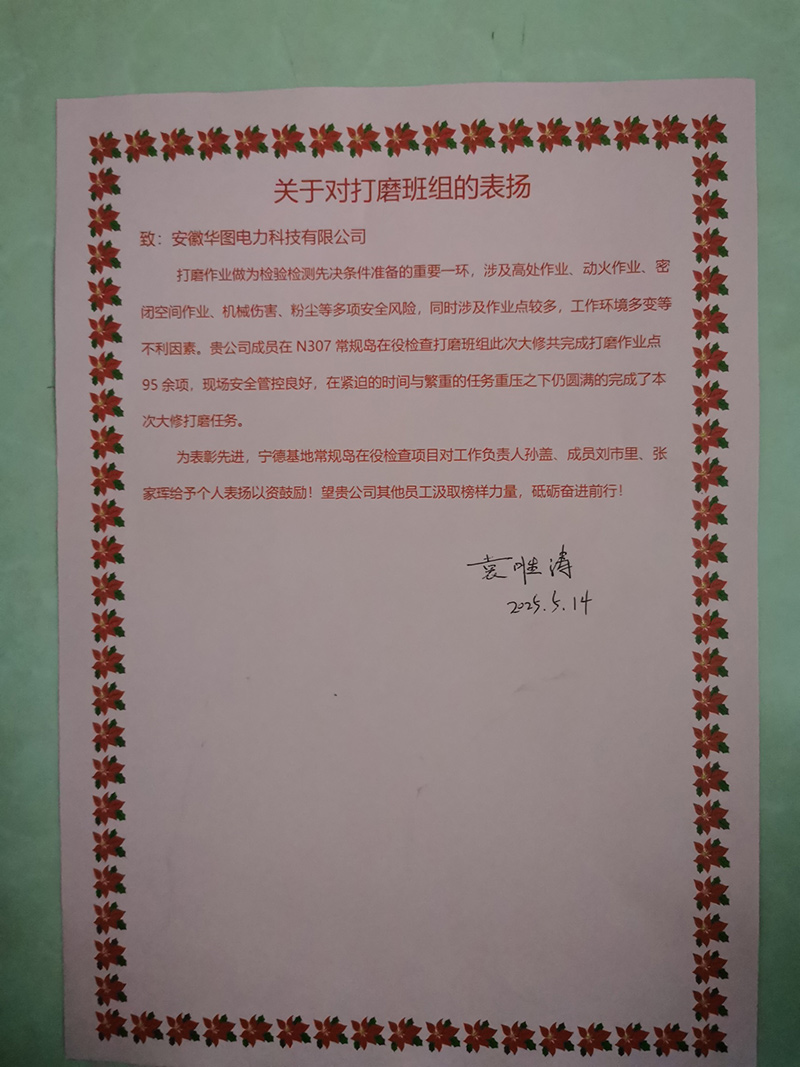 关于对打磨班组的表扬
致：安徽华图电力科技有限公司
打磨作业做为检验检测先决条件准备的重要一环，涉及高处作业、动火作业、密
闭空间作业、机械伤害、粉尘等多项安全风险，同时涉及作业点较多，工作环境多变等
不利因素。贵公司成员在 N307 常规岛在役检查打磨班组此次大修共完成打磨作业点
95 余项，现场安全管控良好，在紧迫的时间与繁重的任务重压之下仍圆满的完成了本
次大修打磨任务。
为表彰先进，宁德基地常规岛在役检查项目对工作负责人孙盖、成员刘市里、张
家珲给予个人表扬以资鼓励！望贵公司其他员工汲取榜样力量，砥砺奋进前行！
袁唯涛
2025.5.14